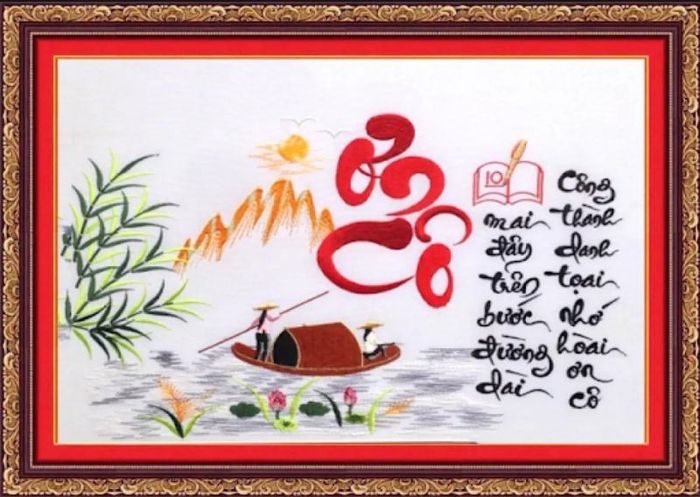 Ơn
Cô
10
mai đây trên bước đường dài
Công thành danh tọai nhớ hoài ơn cô